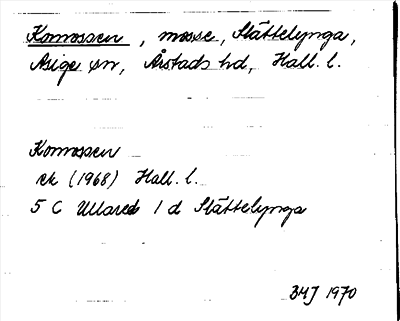 Komossen, mosse, Slättelynga,
Asige sn, Årstads hd, Hall. l.
Komossen
ek (1968) Hall. l.
5 C Ullared 1 d Slättelynga
BHJ 1970